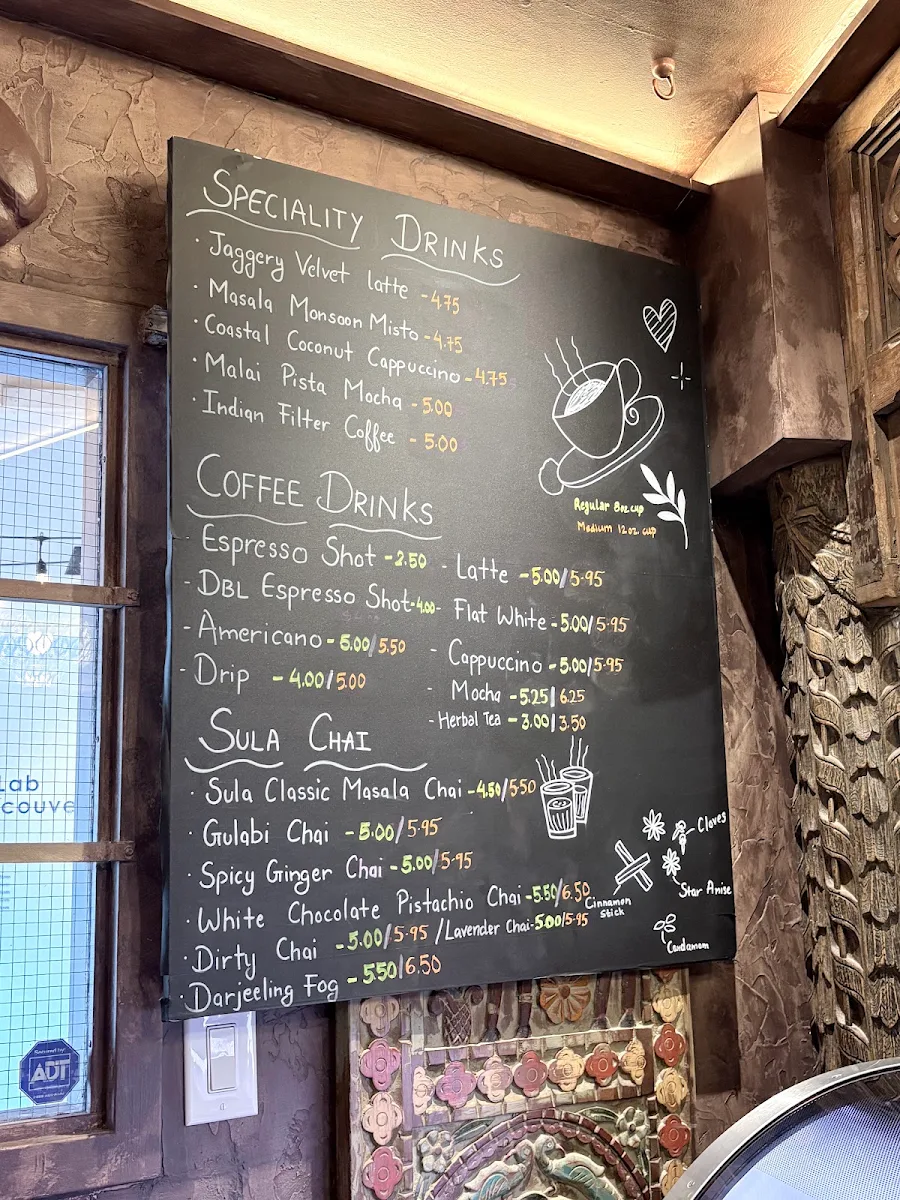 SPECIALITY DRINKS
· Jaggery Velvet latte - 4.75
· Masala Monsoon Misto - 4.75
· Coastal Coconut Cappuccino - 4.75
· Malai Pista Mocha - 5.00
· Indian Filter Coffee - 5.00
Regular 8oz cup
Medium 12oz. cup
COFFEE DRINKS
Espresso Shot - 2.50
- DBL Espresso Shot - 4.00 -
- Americano - 5.00/5.50
- Drip - 4.00/5.00
- Latte - 5.00/5.95
Flat White - 5.00/5.95
- Cappuccino - 5.00/5.95
- Mocha - 5.25/6.25
- Herbal Tea - 3.00/3.50
SULA CHAI
· Sula Classic Masala Chai - 4.50/5.50
· Gulabi Chai - 5.00/5.95
· Spicy Ginger Chai - 5.00/5.95
· White Chocolate Pistachio Chai - 5.50/6.50
· Dirty Chai - 5.00/5.95 /Lavender Chai - 5.00/5.95
· Darjeeling Fog - 5.50/6.50
Cloves
Star Anise
Cinnamon
Stick
Cardamom
Lab
couve
Secured by
ADT